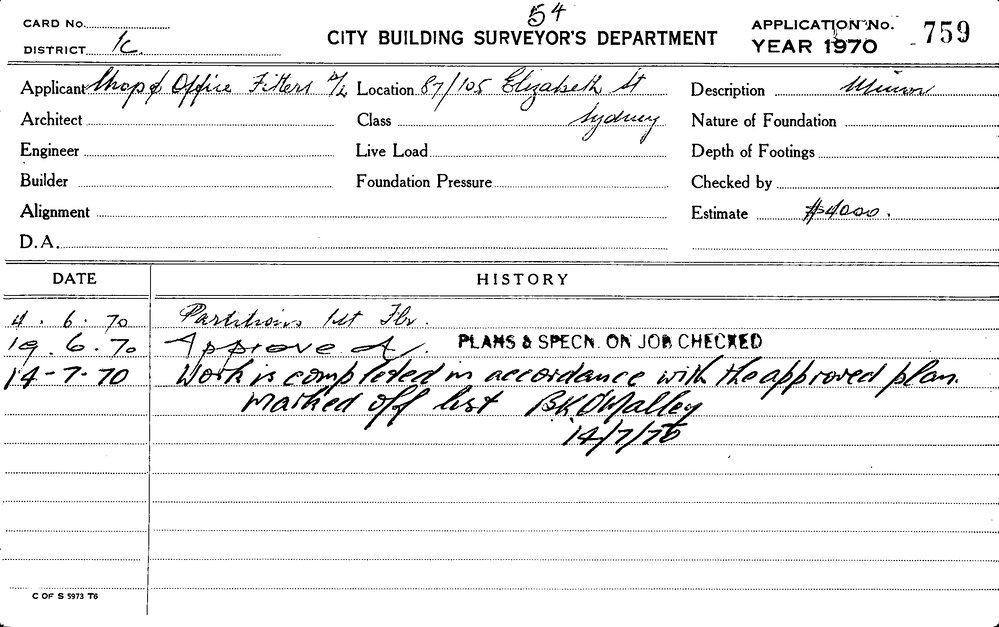 54
CARD No.
APPLICATION No. 759
DISTRICT 1c.
CITY BUILDING SURVEYOR'S DEPARTMENT
YEAR 1970
Applicant Shop & Office Fitters P/L Location 87/105 Elizabeth St Description Minor
Architect Class Sydney Nature of Foundation
Engineer Live Load Depth of Footings
Builder Foundation Pressure Checked by
Alignment Estimate $4000.
D.A.
DATE HISTORY
4. 6. 70 Partitions 1st Flr.
19. 6. 70 Approved PLANS & SPECN. ON JOB CHECKED
14-7-70 Work is completed in accordance with the approved plan.
Marked off list B K O'Malley
14/7/70
C OF S 5973 T6